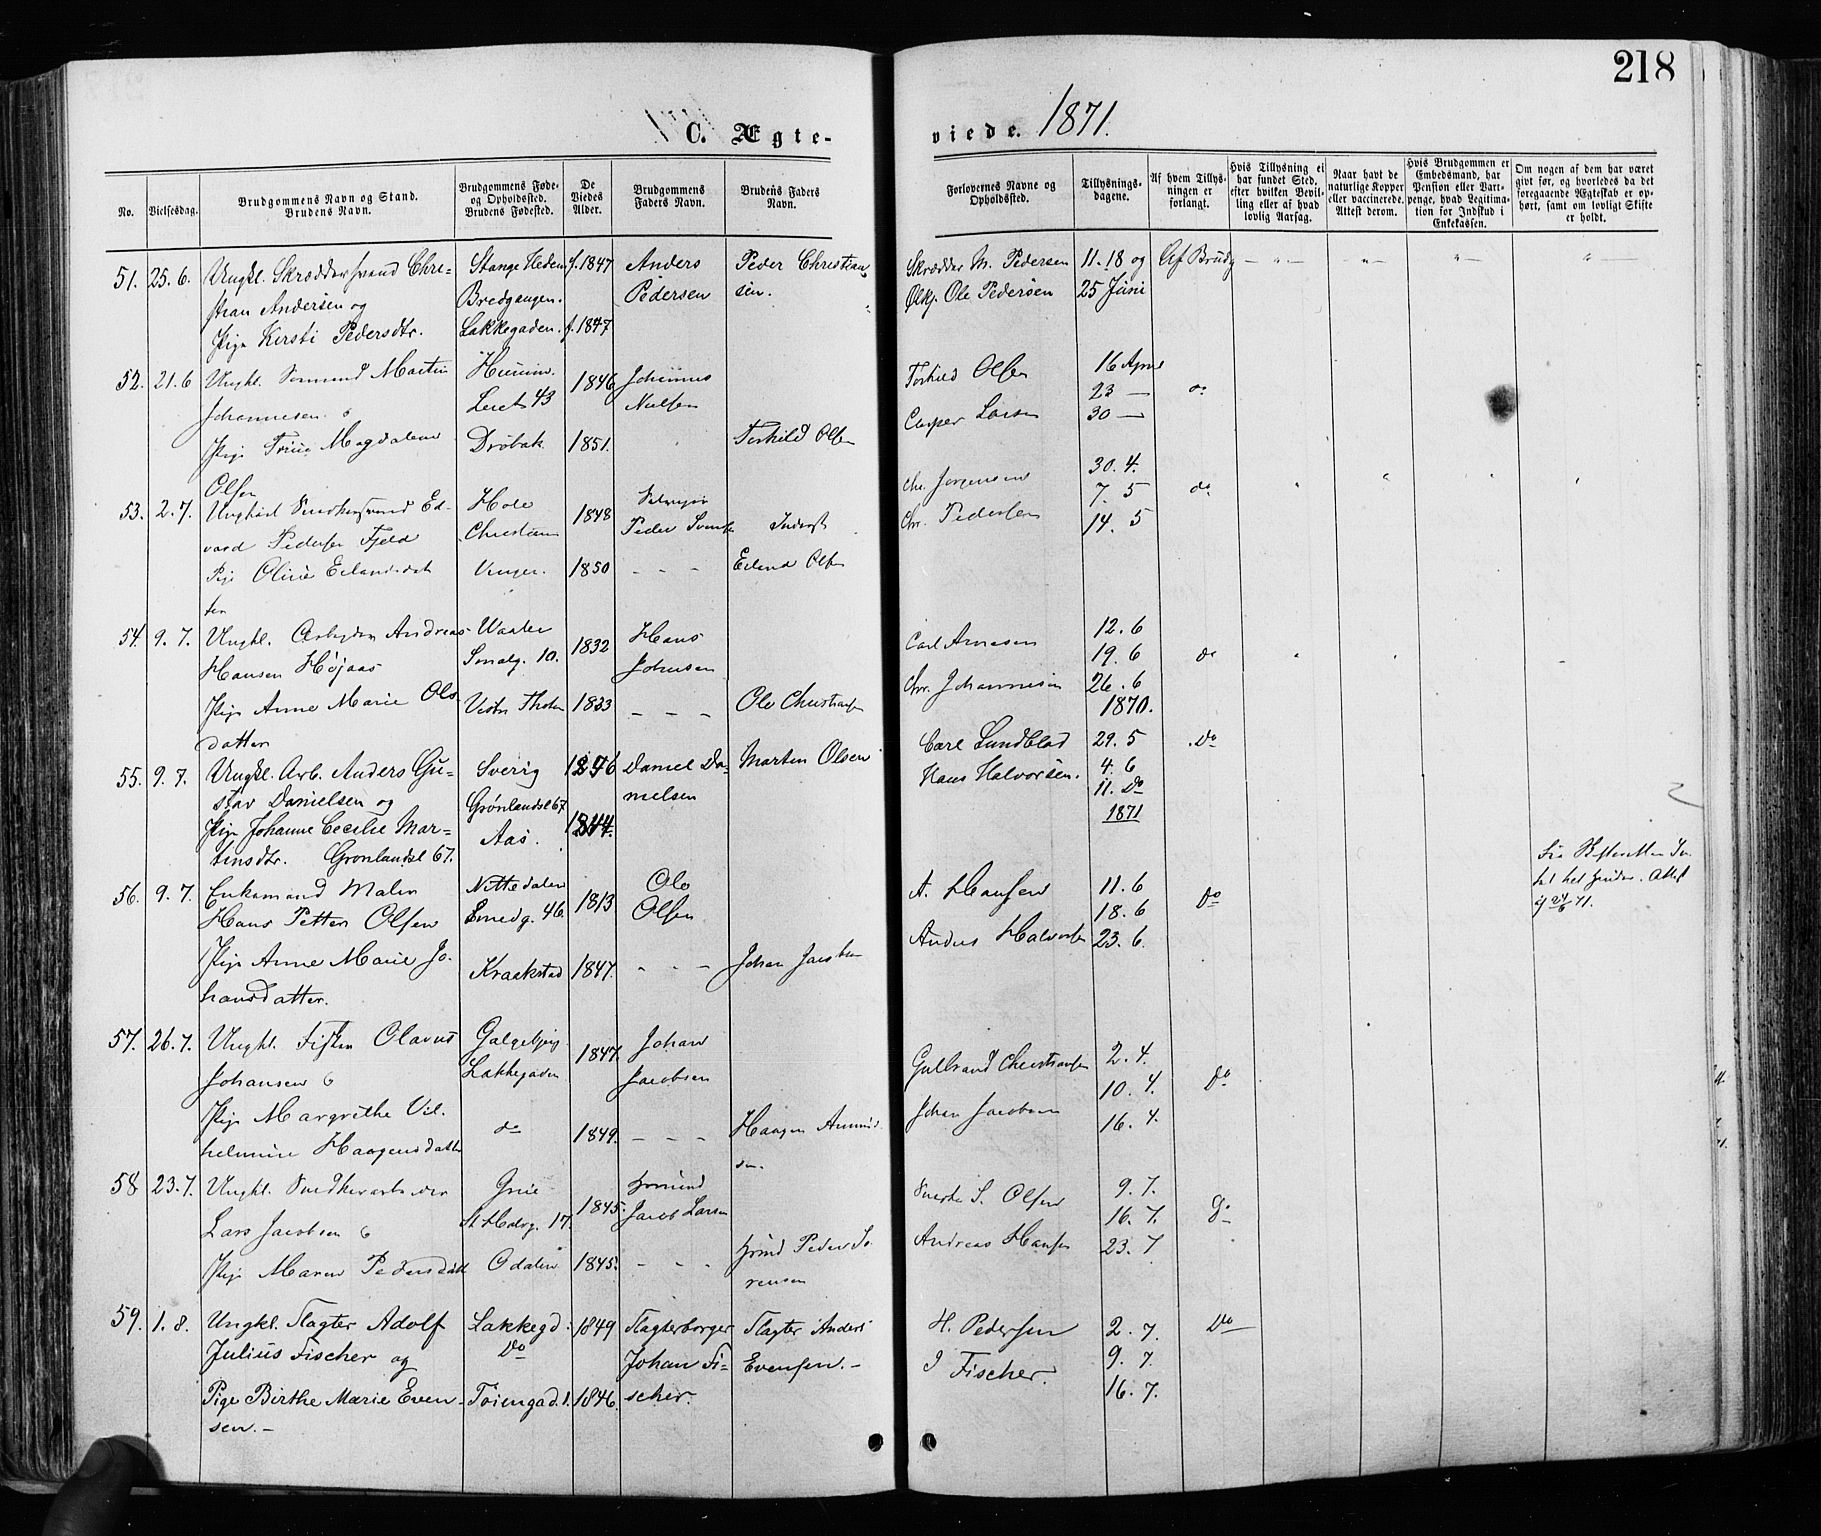 218
C. Ægte-
viede. 1871.
No.
Vielsesdag.
Brudgommens Navn og Stand.
Brudens Navn.
Brudgommens Føde-
og Opholdssted.
Brudens Fødested.
De
Viedes
Alder.
Brudgommens
Faders Navn.
Brudens Faders
Navn.
Forlovernes Navne og
Opholdssted.
Tillysnings-
dagene.
Af hvem Tillys-
ningen er
forlangt.
Hvis Tillysning ei
har fundet Sted,
efter hvilken Bevil-
ling eller af hvad
lovlig Aarsag.
Naar havt de
naturlige Kopper
eller vaccinerede.
Attest derom.
Hvis Brudgommen er
Embedsmand, har
Pension eller Vart-
penge, hvad Legitima-
tion for Indskud i
Enkekassen.
Om nogen af dem har været
givt før, og hvorledes da det
foregaaende Ægteskab er op-
hørt, samt om lovligt Skifte
er holdt.
51. 25. 6. Ungkl. Skræddersvend Chri-
stian Andersen og
Pige Kirsti Pedersdtr.
Stange Hedem
Bredgangen.
Lakkegaden.
f. 1847
f. 1847
Anders
Pedersen
Peder Christian
sen.
Skrædder M. Pedersen
Ølkj. Ole Pedersen
11. 18 og
25 Juni
Af Brudg
52. 21. 6 Ungkl. Sømand Martin
Johannesen
Pige Trine Magdalene
Olsen
Leiret 43
Drøbak
1846
1851.
Johannes
Nielsen
Torkild Olsen
Torkild Olsen
Casper Larsen
16 April
23 —
30 —
do
53. 2. 7. Ungkarl Snedkersvend Ed-
vard Pedersen Fjeld
Pige Oline Erlandsdat
ter
Hole
Christiania
Vinger.
1848
1850
Peder
Inderst
Erland Olsen
Chr. Jørgensen
Chr. Pedersen
30. 4.
7. 5
14. 5
do
54. 9. 7. Ungkl. Arbeider Andreas
Hansen Højaas
Pige Anne Marie Ols
datter
Waaler
Smalg. 10.
Vestre Thoten
1832
1833
Hans
Johnsen
Ole Christiansen
Carl Arnesen
Chr. Johannesen
12. 6
19. 6
26. 6
1870.
do
55. 9. 7. Ungkl. Arb. Anders Gu-
stav Danielsen og
Pige Johanne Cecilie Mar-
tinsdtr. Grønlandsl 67.
Sverig
Grønlandsl 67
Aas.
1846
1844.
Daniel Da-
nielsen
Martin Olsen
Carl Lundblad
Hans Halvorsen.
29. 5
4. 6
11. Do
1871
Do
56. 9. 7. Enkemand Maler
Hans Petter Olsen
Pige Anne Marie Jo-
hansdatter.
Nittedalen
Smedg. 46.
Kraakstad
1813
1847.
Ole
Olsen
Johan Jacobsen
A. Hansen
Anders Halvorsen
11. 6
18. 6
23. 6.
Do
57. 26. 7. Ungkl. Fisker Olavus
Johansen
Pige Margrithe Vil-
helmine Haagensdatter
Galgebjerg
Lakkegaden
do
1847.
1849.
Johan
Jacobsen
Haagen Amund
sen
Gulbrand Christiansen
Johan Jacobsen
2. 4.
10. 4.
16. 4.
Do
58 23. 7. Ungkl. Snedkerarbeider
Lars Jacobsen
Pige Maren Pedersdatt
Grue
St. Halvg. 17.
Odalen
1845.
1845.
Jacob Larsen
Peder So
rensen
S. Olsen
Andreas Hansen
9. 7.
16. 7.
23. 7
59. 1. 8. Ungkl. Slagter Adolf
Julius Fischer og
Pige Birthe Marie Even-
sen. -
Lakkegd.
Do
Tøiengad. 1.
1849
1846.
Slagterborger
Johan Fi-
scher.
Slagter Anders
Evensen. -
H. Pedersen
J Fischer.
2. 7.
9. 7.
16. 7.
Do